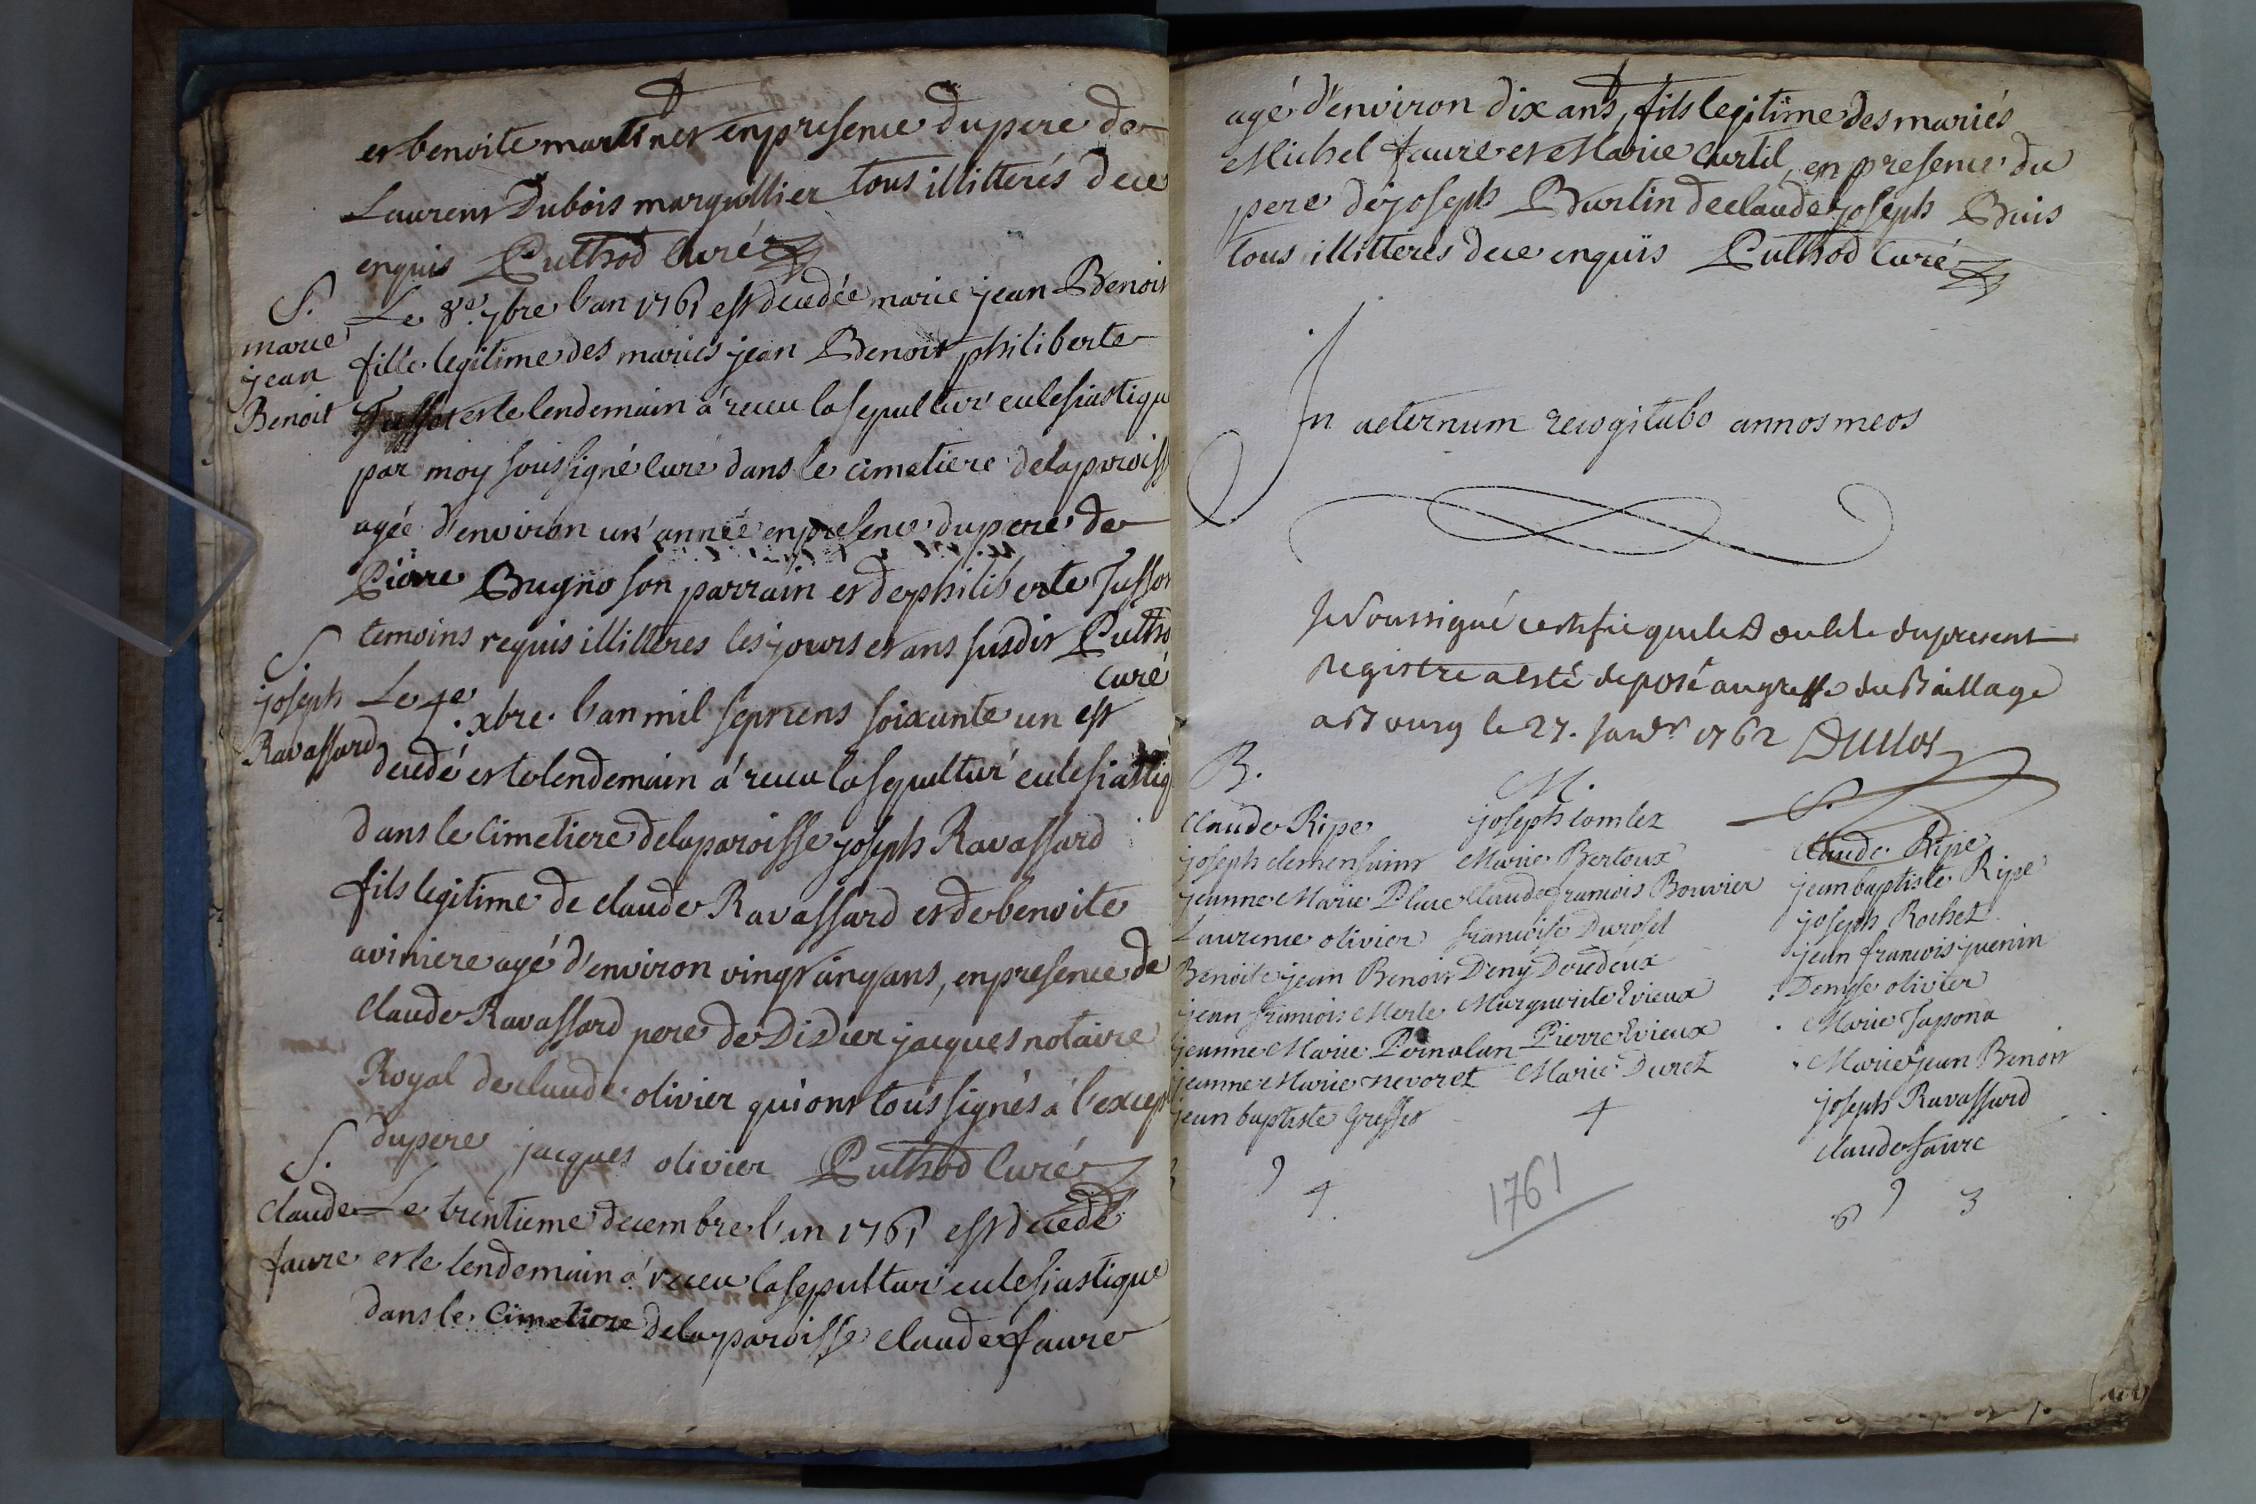 et benoite martinet en presence du pere de
Laurent Dubois marguillier tous illitterés de ce
enquis Puthod Curé
S.
marie
jean
Benoit
Le 8e 7bre l'an 1761 est decedée marie jean Benoit
fille legitime des mariés jean Benoit philiberte
et le lendemain a receu la sepultur eclesiastiqu
par moy soussigné curé dans le cimetiere de la paroiss
agée d'environ un' année en presence du pere de
Pierre Bugno son parrain et de philiberte Jusson
temoins requis illitteres les jours et ans susdit Putho
curé
S
joseph
Ravassard
Le 4e xbre l'an mil sept cens soixante un est
decedé et le lendemain a receu la sepultur' eclesiastiq
dans le Cimetiere de la paroisse joseph Ravassard
fils legitime de claude Ravassard et de benoite
aviniere agé d'environ vingt cinq ans, en presence de
Claude Ravassard pere de Didier jacques notaire
Royal de claude olivier qui ont tous signés a l'except
du pere jacques olivier Puthod Curé
S.
claude
faure
Le trentieme decembre l'an 1761 est decedé
et le lendemain a receu la sepultur' eclesiastique
dans le Cimetiere de la paroisse claude faure
agé d'environ dix ans, fils legitime des mariés
Michel faure et Marie Curtil, en presence du
pere de joseph Burtin de claude joseph Buis
tous illitteres de ce enquis Puthod Curé
In aeternum recogitabo annos meos
Je soussigné certifie que le double du present
Registre a esté deposé au greffe du Baillage
a Bourg le 27. janvr 1762 Duclos
B.
claude Ripe
joseph clemensaint
jeanne Marie Place
Laurence olivier
Benoite jean Benoit
jean francois Merle
jeanne Marie Pernalun
jeanne Marie nevoret
jean baptiste Greffet
9
4
M.
joseph comlez
Marie Bertoux
Claude francois Bouvier
francoise Durosel
Deny Deredeux
Marguerite Evieux
Pierre Evieux
Marie Duret
4
1761
S.
Claude Ripe
jean baptiste Ripe
joseph Rochet
jean francois juenin
Denyse olivier
Marie Japona
Marie jean Benoit
joseph Ravassard
claude faure
6 9 3